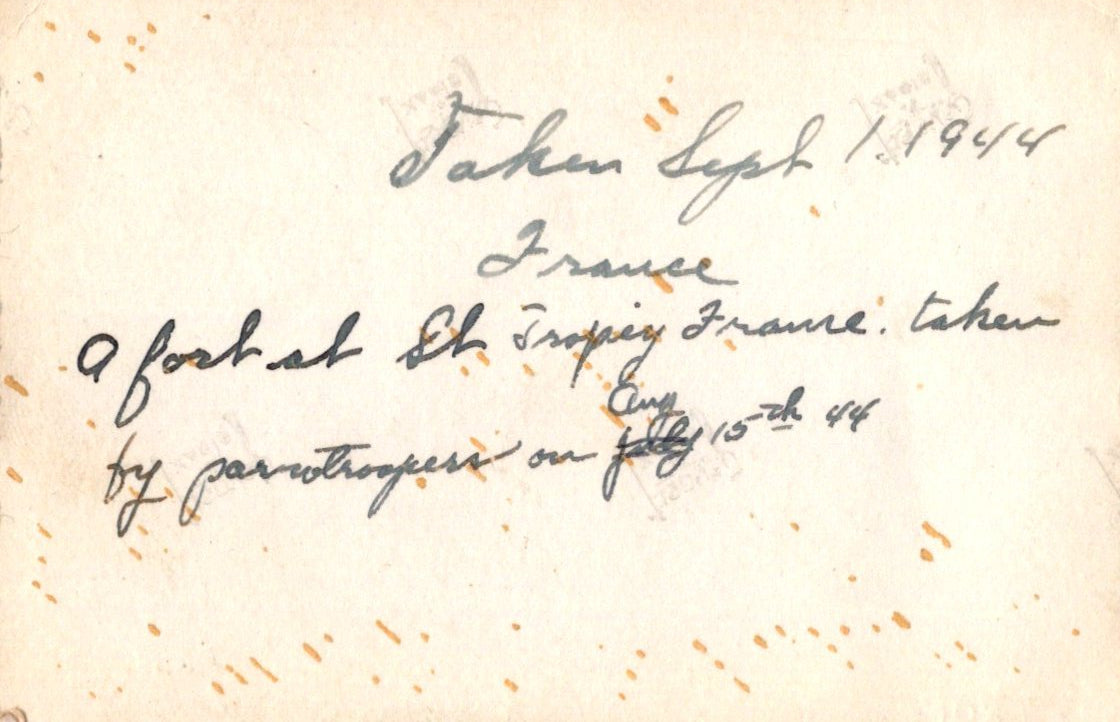 Taken Sept 1. 1944
France
A fort at St Tropiz France. taken
Aug
by parotroopers on July 15th 44